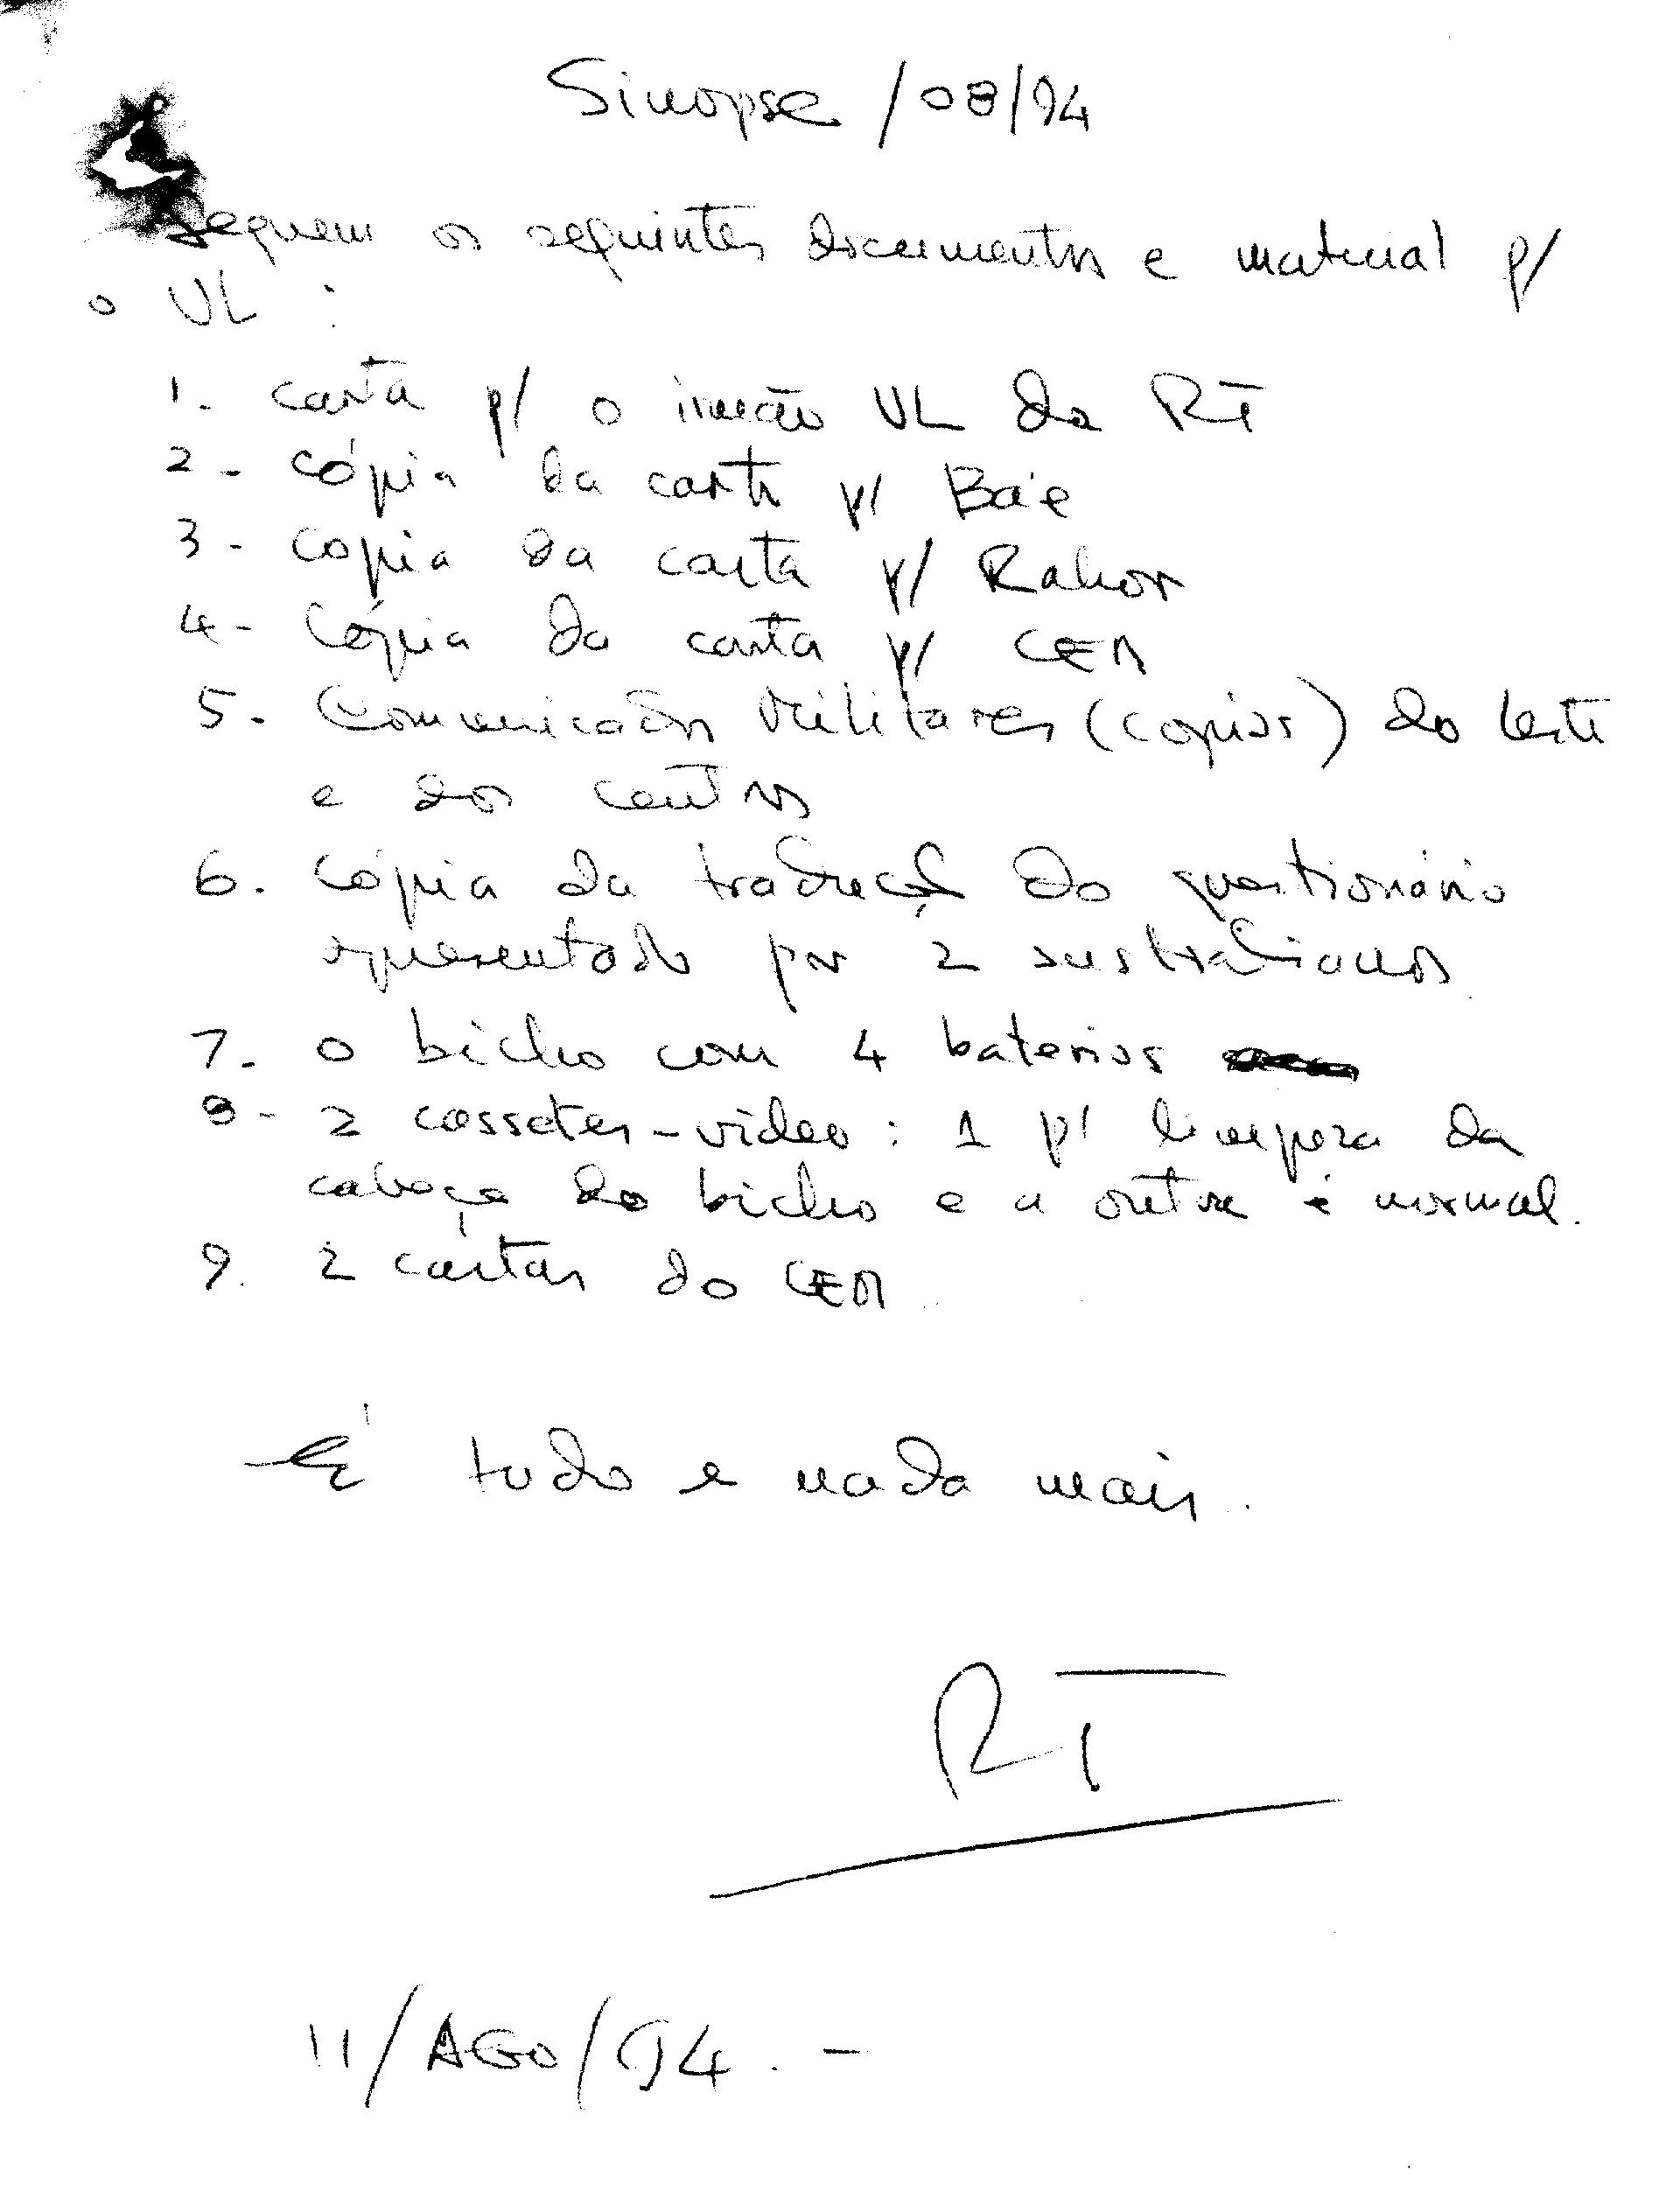 Sinopse /08/94
Seguem os seguintes documentos e material p/
o UL :
1. carta p/ o irmão UL da RT
2 - cópia da carta p/ Ba'e
3 - copia da carta p/
4 - Cópia da carta p/ CEM
5. Comunicados Militares (copias) do leste
e dos centros
6. Cópia da tradução do questionário
apresentado por 2 australianos
7. o bicho com 4 baterias
8 - 2 cassetes - video : 1 p/ limpeza da
cabeça do bicho e a outra é normal.
9. 2 cartas do CEM
É tudo e nada mais.
RT
11/AGO/94. -